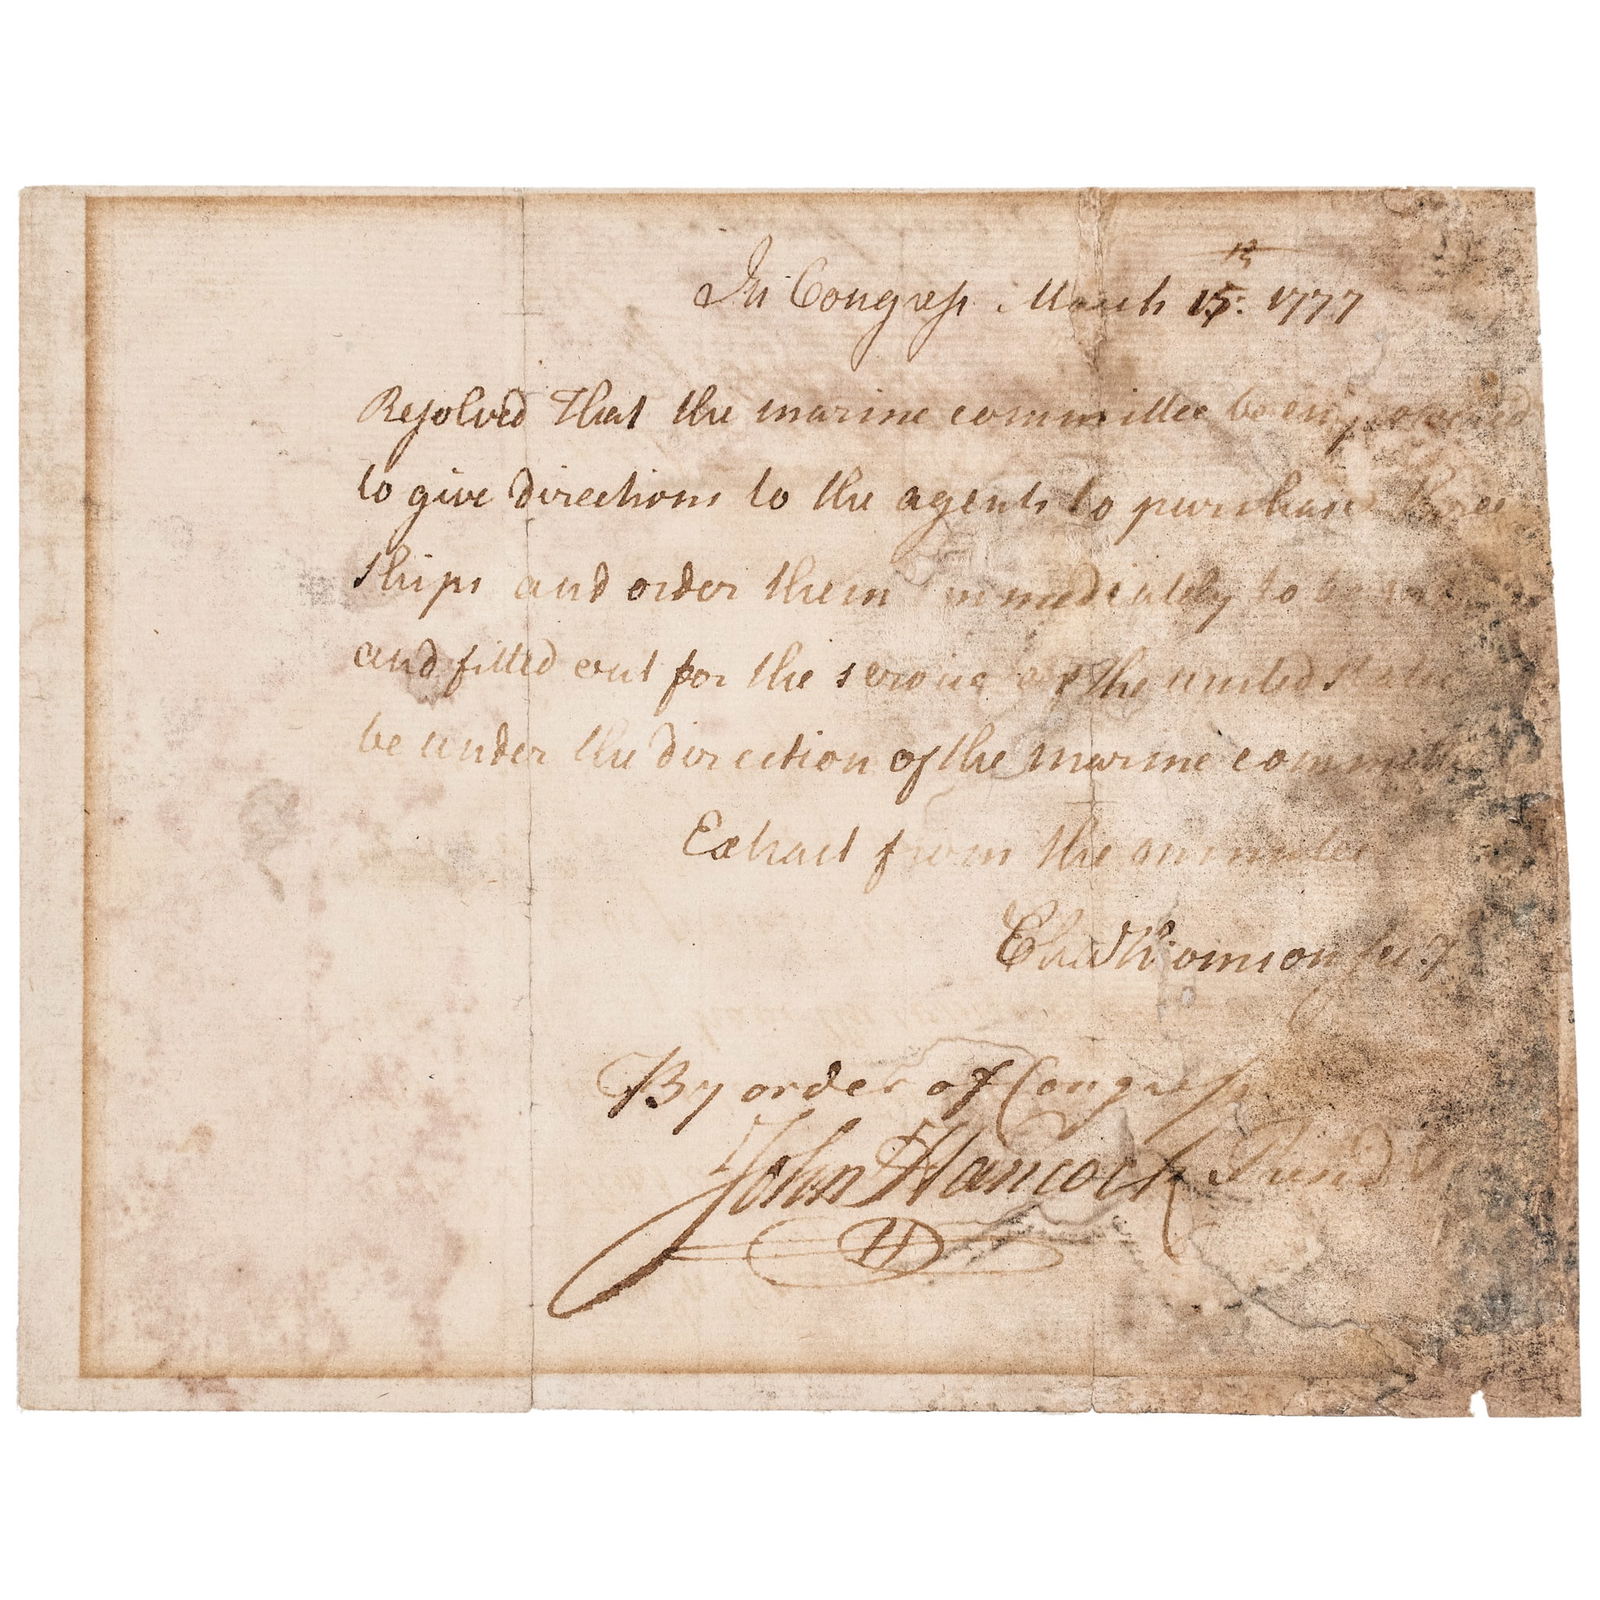 In Congress March 15. 1777
13
Resolved That the marine committee be empowered
to give directions to the agents to purchase three
ships and order them immediately to be
and fitted out for the service of the united states
be under the direction of the marine committee
Extract from the minutes
Cha Thomson secy
By order of Congress
John Hancock Presid